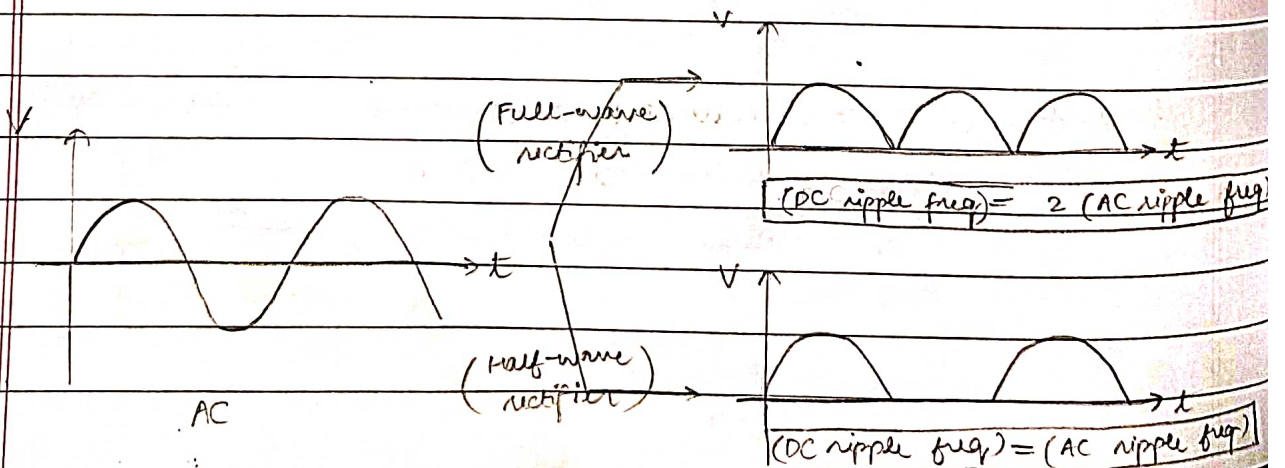 V
t
AC
(Full-wave
rectifier)
V
t
(DC ripple freq) = 2 (AC ripple freq)
(Half-wave
rectifier)
V
t
(DC ripple freq) = (AC ripple freq)